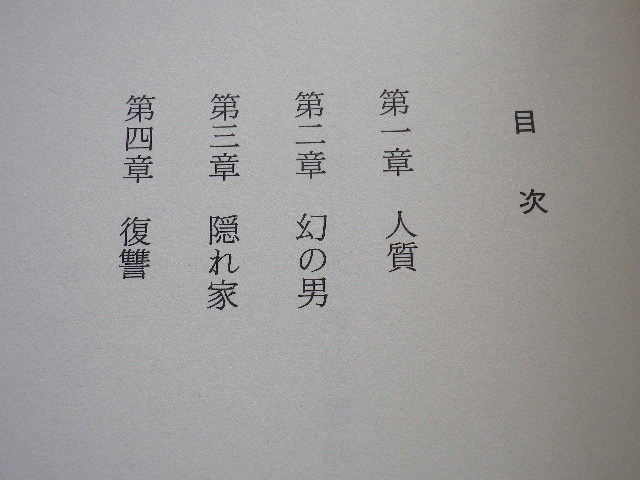 目次
第一章 人質
第二章 幻の男
第三章 隠れ家
第四章 復讐